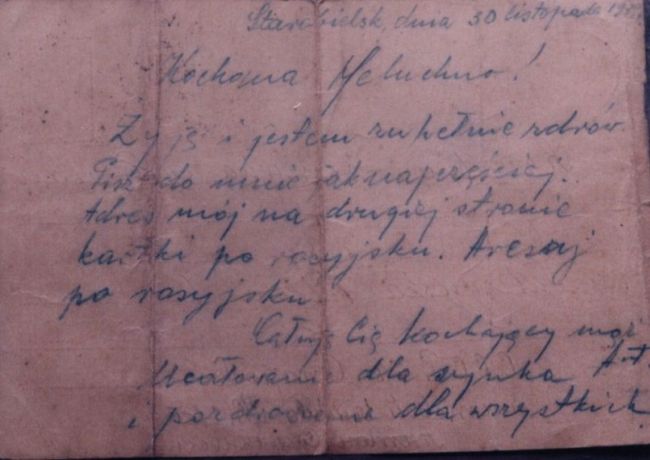 Starobielsk, dnia 30 listopada
Kochana Meluchno!
Żyję i jestem zupełnie zdrów.
Pisz do mnie jaknajczęściej.
Adres mój na drugiej stronie
kartki po rosyjsku. Aresuj
po rosyjsku.
Całuję Cię kochający mąż
Ucałowania dla synka
i pozdrowienia dla wszystkich